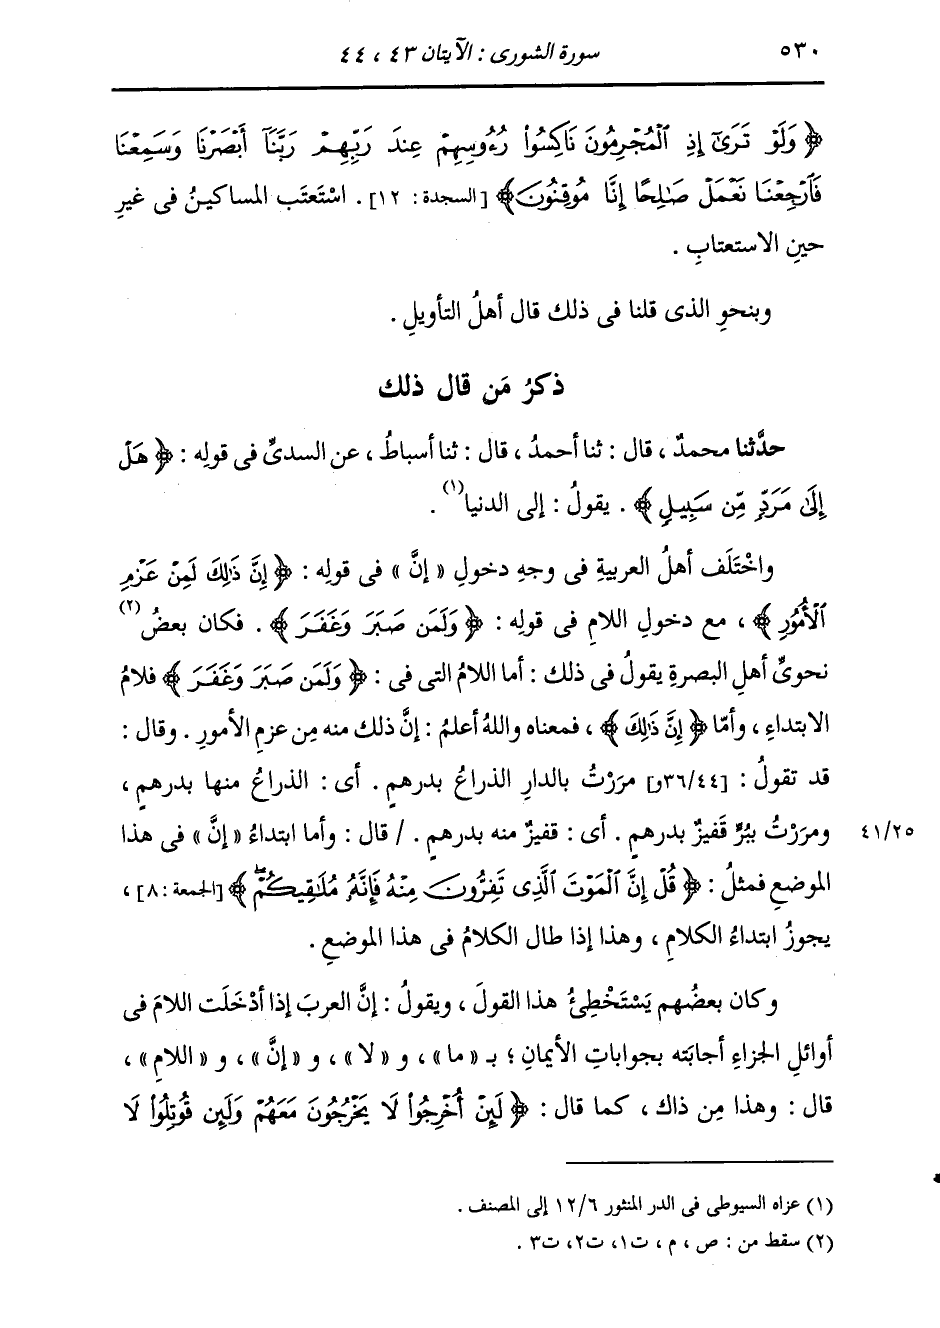 ٥٣٠ سورة الشورى : الآيتان ٤٣ ، ٤٤
﴿ وَلَوْ تَرَىٰٓ إِذِ ٱلْمُجْرِمُونَ نَاكِسُوا۟ رُءُوسِهِمْ عِندَ رَبِّهِمْ رَبَّنَآ أَبْصَرْنَا وَسَمِعْنَا
فَٱرْجِعْنَا نَعْمَلْ صَـٰلِحًا إِنَّا مُوقِنُونَ﴾ [السجدة : ١٢] . اسْتَعتَب المساكينُ فى غيرِ
حينِ الاستعتابِ .
وبنحوِ الذى قلنا فى ذلك قال أهلُ التأويلِ .
ذكرُ مَن قال ذلك
حدَّثنا محمدٌ ، قال : ثنا أحمدُ ، قال : ثنا أسباطُ ، عن السدىِّ فى قولِه : ﴿ هَلْ
إِلَىٰ مَرَدٍّ مِّن سَبِيلٍ ﴾ . يقولُ : إلى الدنيا(١) .
واخْتَلَف أهلُ العربيةِ فى وجهِ دخولِ « إنَّ » فى قولِه : ﴿ إِنَّ ذَٰلِكَ لَمِنْ عَزْمِ
ٱلْأُمُورِ ﴾ ، مع دخولِ اللامِ فى قولِه : ﴿ وَلَمَن صَبَرَ وَغَفَرَ ﴾ . فكان بعضُ(٢)
نحويِّى أهلِ البصرةِ يقولُ فى ذلك : أما اللامُ التى فى : ﴿ وَلَمَن صَبَرَ وَغَفَرَ ﴾ فلامُ
الابتداءِ ، وأمّا ﴿ إِنَّ ذَٰلِكَ ﴾ ، فمعناه واللهُ أعلمُ : إنَّ ذلك منه مِن عزمِ الأمورِ . وقال :
قد تقولُ : [٣٦/٤٤و] مرَرْتُ بالدارِ الذراعُ بدرهمٍ . أى : الذراعُ منها بدرهمٍ ،
ومرَرْتُ ببُرٍّ قَفيزٌ بدرهمٍ . أى : قفيزٌ منه بدرهمٍ . / قال : وأما ابتداءُ « إنَّ » فى هذا ٤١/٢٥
الموضعِ فمثلُ : ﴿ قُلْ إِنَّ ٱلْمَوْتَ ٱلَّذِى تَفِرُّونَ مِنْهُ فَإِنَّهُۥ مُلَـٰقِيكُمْ ۖ ﴾ [الجمعة : ٨] ،
يجوزُ ابتداءُ الكلامِ ، وهذا إذا طال الكلامُ فى هذا الموضعِ .
وكان بعضُهم يَسْتَخْطِئُ هذا القولَ ، ويقولُ : إنَّ العربَ إذا أدْخَلَت اللامَ فى
أوائلِ الجزاءِ أجابَته بجواباتِ الأيمانِ ؛ بـ « ما » ، و « لا » ، و « إنَّ » ، و « اللامِ » ،
قال : وهذا مِن ذاك ، كما قال : ﴿ لَئِنْ أُخْرِجُوا۟ لَا يَخْرُجُونَ مَعَهُمْ وَلَئِن قُوتِلُوا۟ لَا
(١) عزاه السيوطى فى الدر المنثور ١٢/٦ إلى المصنف .
(٢) سقط من : ص ، م ، ت١، ت٢، ت٣ .